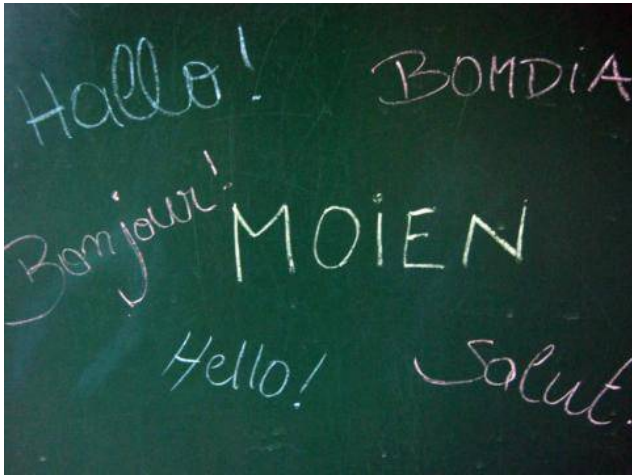 Hallo!
BOMDiA
Bonjour!
MOiEN
Hello!
Salut.